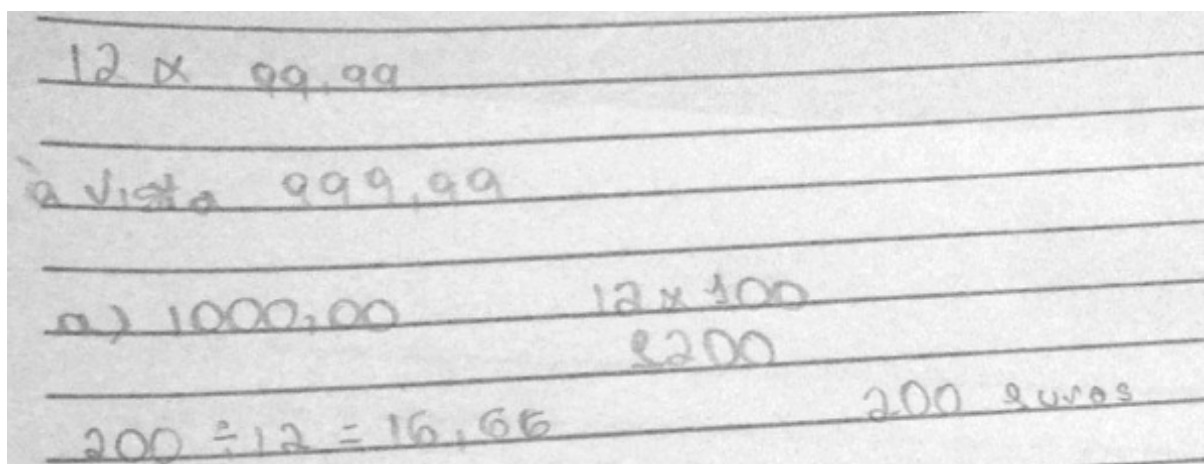 12 x 99,99
à vista 999,99
a) 1000,00 12 x 100
1200
200 ÷ 12 = 16,66 200 euros